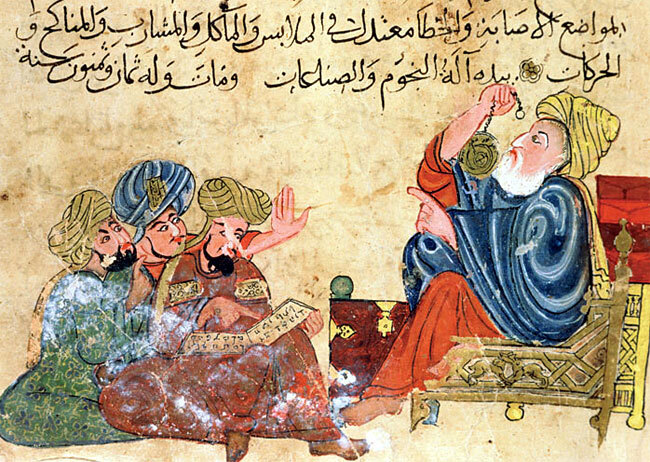 المواضع الاصابة والخطا معتدل في الملابس والمآكل والمشارب والمناكح و
الحركات بيده آلة النجوم والصناعات ومات وله ثمان وستون سنة